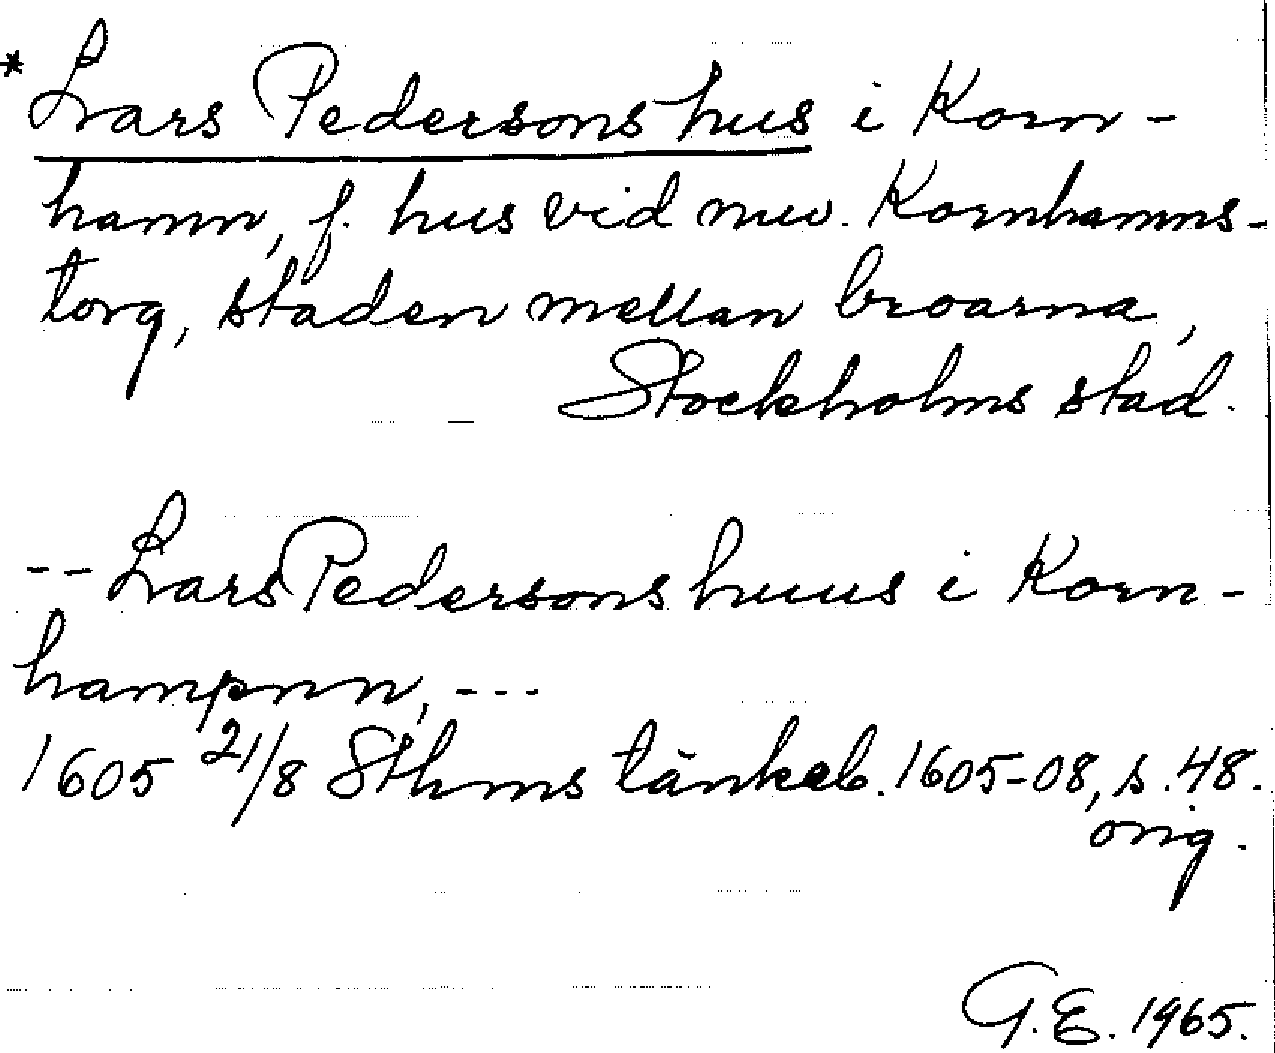 * Lars Pedersons hus i Korn-
hamn, f. hus vid nuv. Kornhamns-
torg, staden mellan broarna,
Stockholms stad.
-- Lars Pedersons huus i Korn-
hampnn, ---
1605 21/8 Sthms tänkeb. 1605-08, s. 48.
orig.
G.E. 1965.